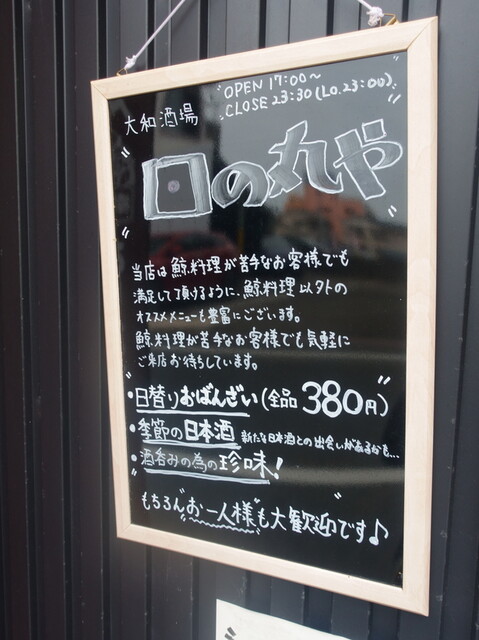 OPEN 17:00〜
CLOSE 23:30(L.O.23:00)
大和酒場
日の丸や
当店は鯨料理が苦手なお客様でも
満足して頂けるように、鯨料理以外の
オススメメニューも豊富にございます。
鯨料理が苦手なお客様でも気軽に
ご来店お待ちしています。
・日替りおばんざい(全品380円)
・季節の日本酒 新たな日本酒との出会いがあるかも…
・酒呑みの為の珍味!
もちろん"お一人様"も大歓迎です♪